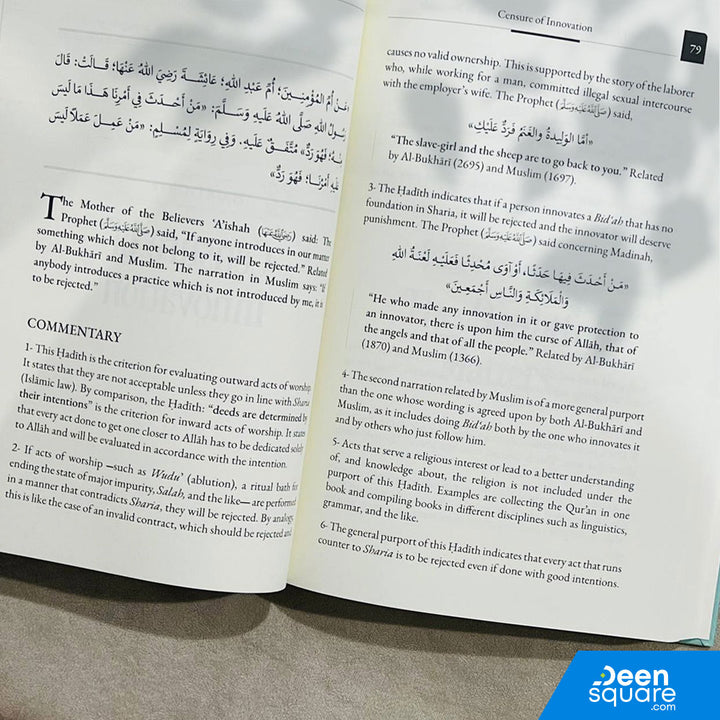 عَنْ أُمِّ المُؤْمِنِينَ؛ أُمِّ عَبْدِ اللهِ؛ عَائِشَةَ رَضِيَ اللهُ عَنْهَا؛ قَالَتْ: قَالَ
رَسُولُ اللهِ صَلَّى اللهُ عَلَيْهِ وَسَلَّمَ: «مَنْ أَحْدَثَ فِي أَمْرِنَا هَذَا مَا لَيْسَ
مِنْهُ؛ فَهُوَ رَدٌّ» مُتَّفَقٌ عَلَيْهِ. وَفِي رِوَايَةٍ لِمُسْلِمٍ: «مَنْ عَمِلَ عَمَلًا لَيْسَ
عَلَيْهِ أَمْرُنَا؛ فَهُوَ رَدٌّ»
The Mother of the Believers ‘A’ishah (رضي الله عنها) said: The
Prophet (صلى الله عليه وسلم) said, “If anyone introduces in our matter
something which does not belong to it, will be rejected.” Related
by Al-Bukhārī and Muslim. The narration in Muslim says: “If
anybody introduces a practice which is not introduced by me, it is
to be rejected.”
COMMENTARY
1- This Ḥadīth is the criterion for evaluating outward acts of worship.
It states that they are not acceptable unless they go in line with Sharia
(Islāmic law). By comparison, the Ḥadīth: “deeds are determined by
their intentions” is the criterion for inward acts of worship. It states
that every act done to get one closer to Allāh has to be dedicated solely
to Allāh and will be evaluated in accordance with the intention.
2- If acts of worship –such as Wudu’ (ablution), a ritual bath for
ending the state of major impurity, Salah, and the like— are performed
in a manner that contradicts Sharia, they will be rejected. By analogy,
this is like the case of an invalid contract, which should be rejected and
Censure of Innovation
79
causes no valid ownership. This is supported by the story of the laborer
who, while working for a man, committed illegal sexual intercourse
with the employer’s wife. The Prophet (صلى الله عليه وسلم) said,
«أَمَّا الوَلِيدَةُ والغَنَمُ فَرَدٌّ عَلَيْكَ»
“The slave-girl and the sheep are to go back to you.” Related
by Al-Bukhārī (2695) and Muslim (1697).
3- The Ḥadīth indicates that if a person innovates a Bid‘ah that has no
foundation in Sharia, it will be rejected and the innovator will deserve
punishment. The Prophet (صلى الله عليه وسلم) said concerning Madinah,
«مَنْ أَحْدَثَ فِيهَا حَدَثًا، أَوْ آوَى مُحْدِثًا فَعَلَيْهِ لَعْنَةُ اللهِ
وَالْمَلَائِكَةِ وَالنَّاسِ أَجْمَعِينَ»
“He who made any innovation in it or gave protection to
an innovator, there is upon him the curse of Allāh, that of
the angels and that of all the people.” Related by Al-Bukhārī
(1870) and Muslim (1366).
4- The second narration related by Muslim is of a more general purport
than the one whose wording is agreed upon by both Al-Bukhārī and
Muslim, as it includes doing Bid‘ah both by the one who innovates it
and by others who just follow him.
5- Acts that serve a religious interest or lead to a better understanding
of, and knowledge about, the religion is not included under the
purport of this Ḥadīth. Examples are collecting the Qur’an in one
book and compiling books in different disciplines such as linguistics,
grammar, and the like.
6- The general purport of this Ḥadīth indicates that every act that runs
counter to Sharia is to be rejected even if done with good intentions.
Deen
square
.com